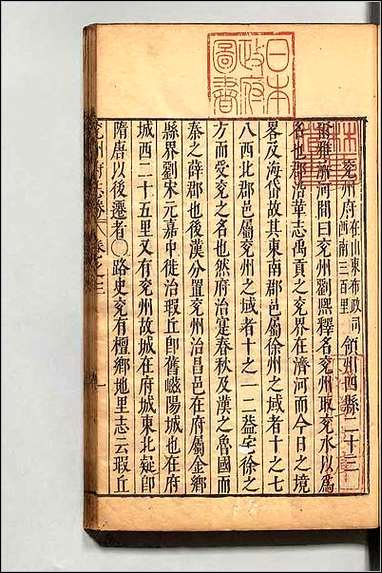 日本
政府
圖書
兗州府在山東布政司西南三百里領州四縣二十三
爾雅濟河間曰兗州劉熙釋名兗州取兗水以爲
名也郡沿革志禹貢之兗界在濟河而今日之境
畧及海岱故其東南郡邑屬徐州之域者十之七
八西北郡邑屬兗州之域者十之一二益宅徐之
方而受兗之名也然府治寔春秋及漢之魯國而
秦之薛郡也後漢分置兗州治昌邑在府屬金鄉
縣界劉宋元嘉中徙治瑕丘卽舊嶧陽城也在府
城西二十五里又有兗州故城在府城東北疑卽
隋唐以後遷者○路史兗有檀鄉地里志云瑕丘
兗州府志卷 卷之三